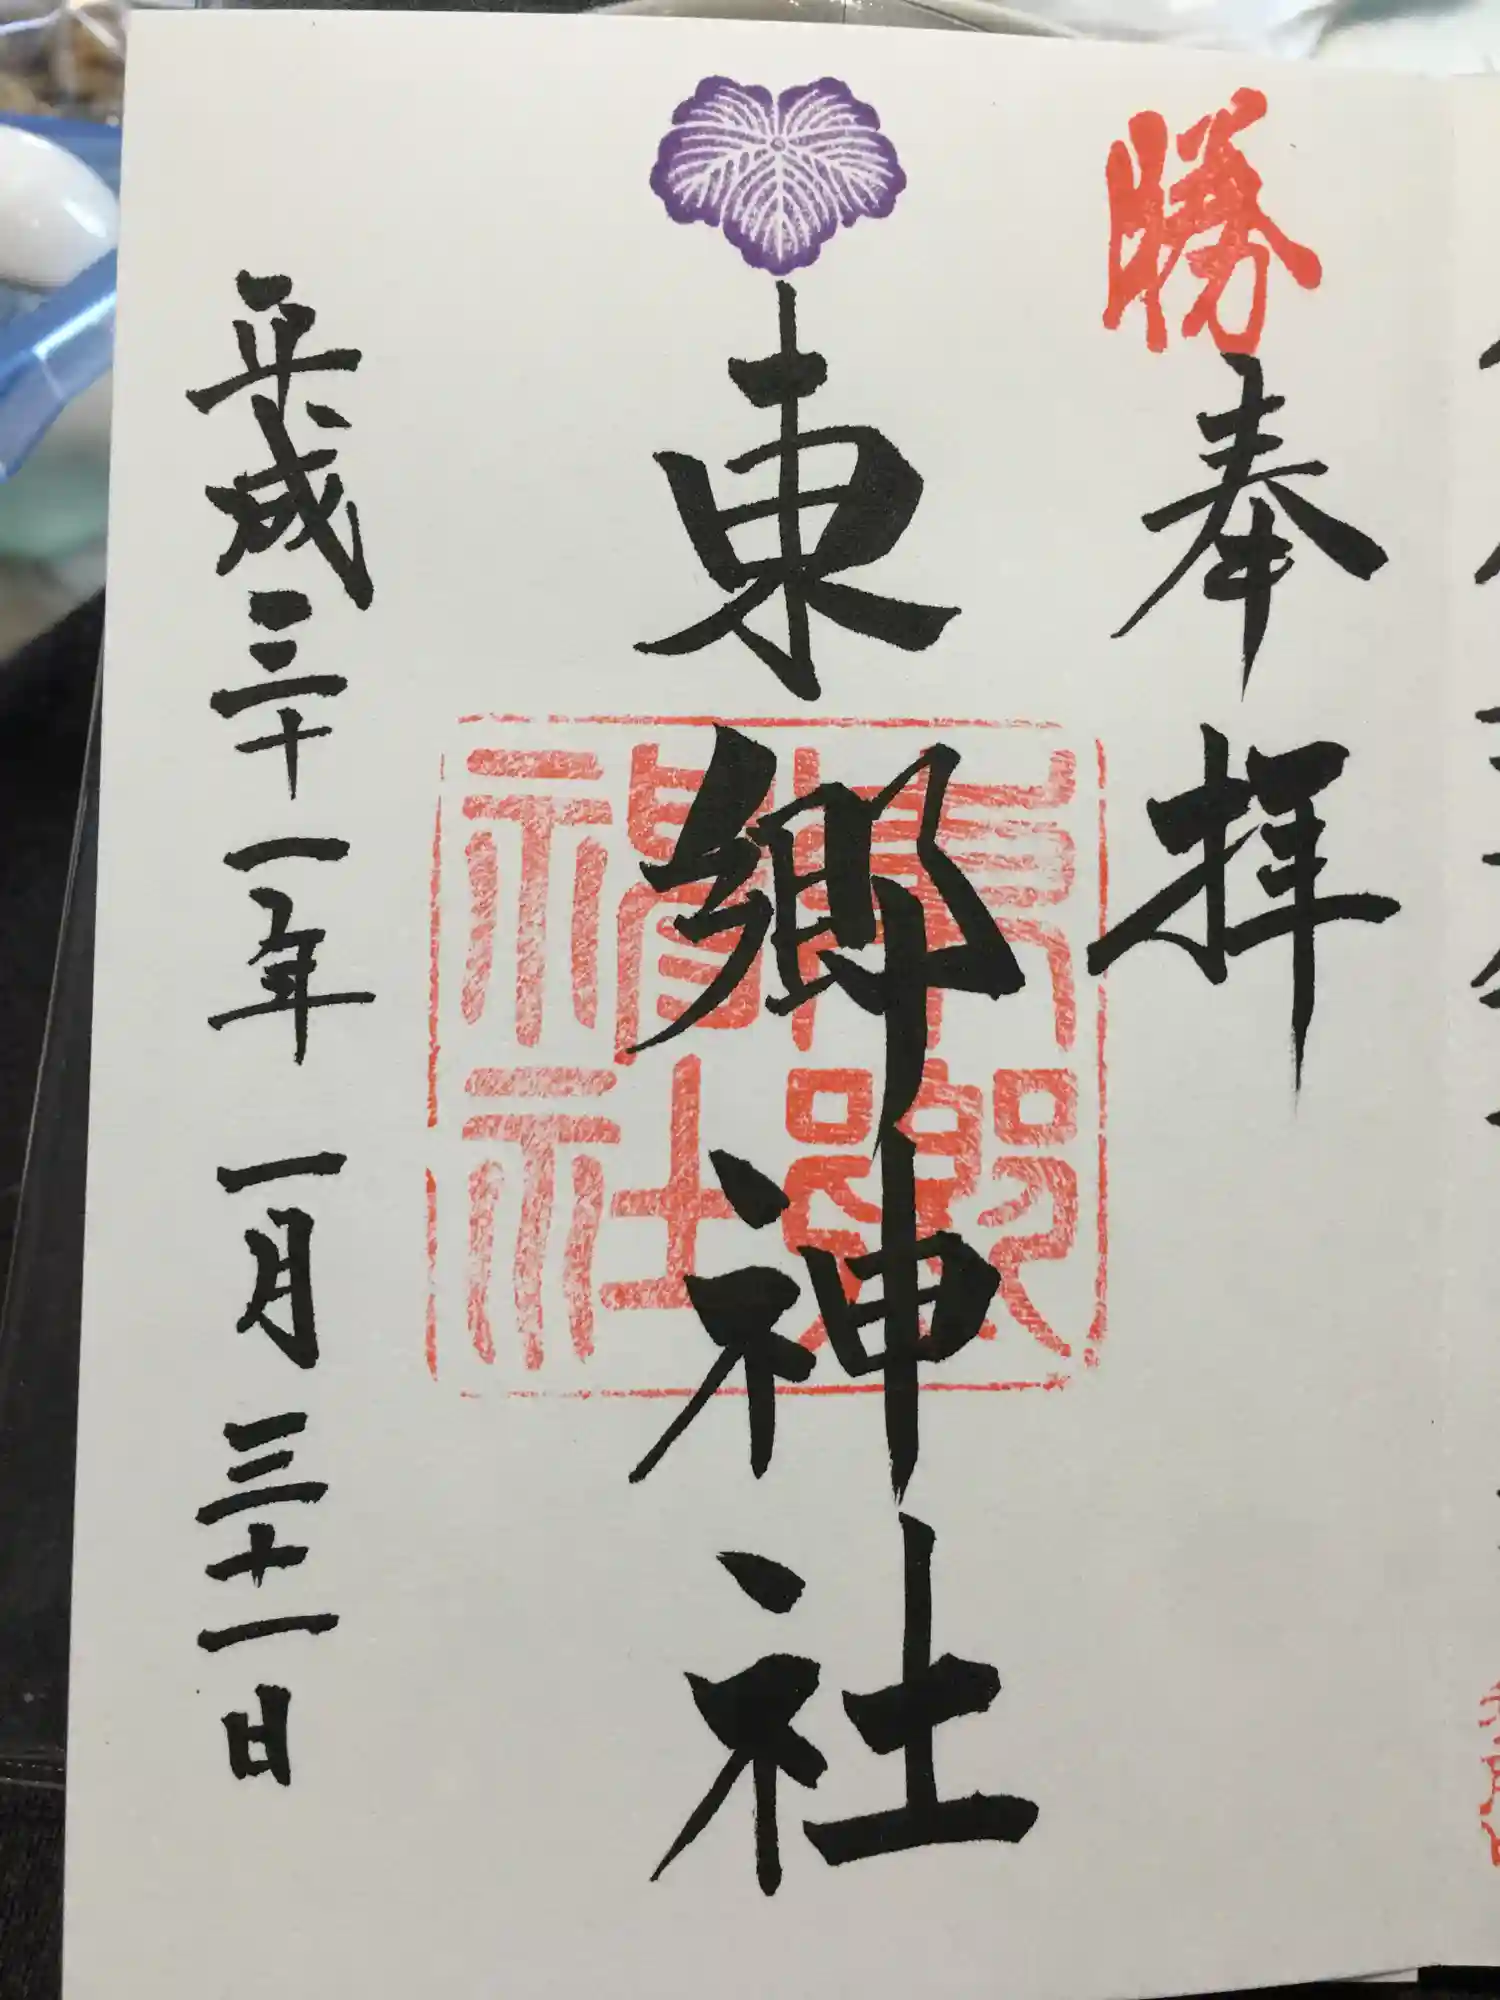 勝
奉拝
東郷神社
東郷神社
平成三十一年一月三十一日